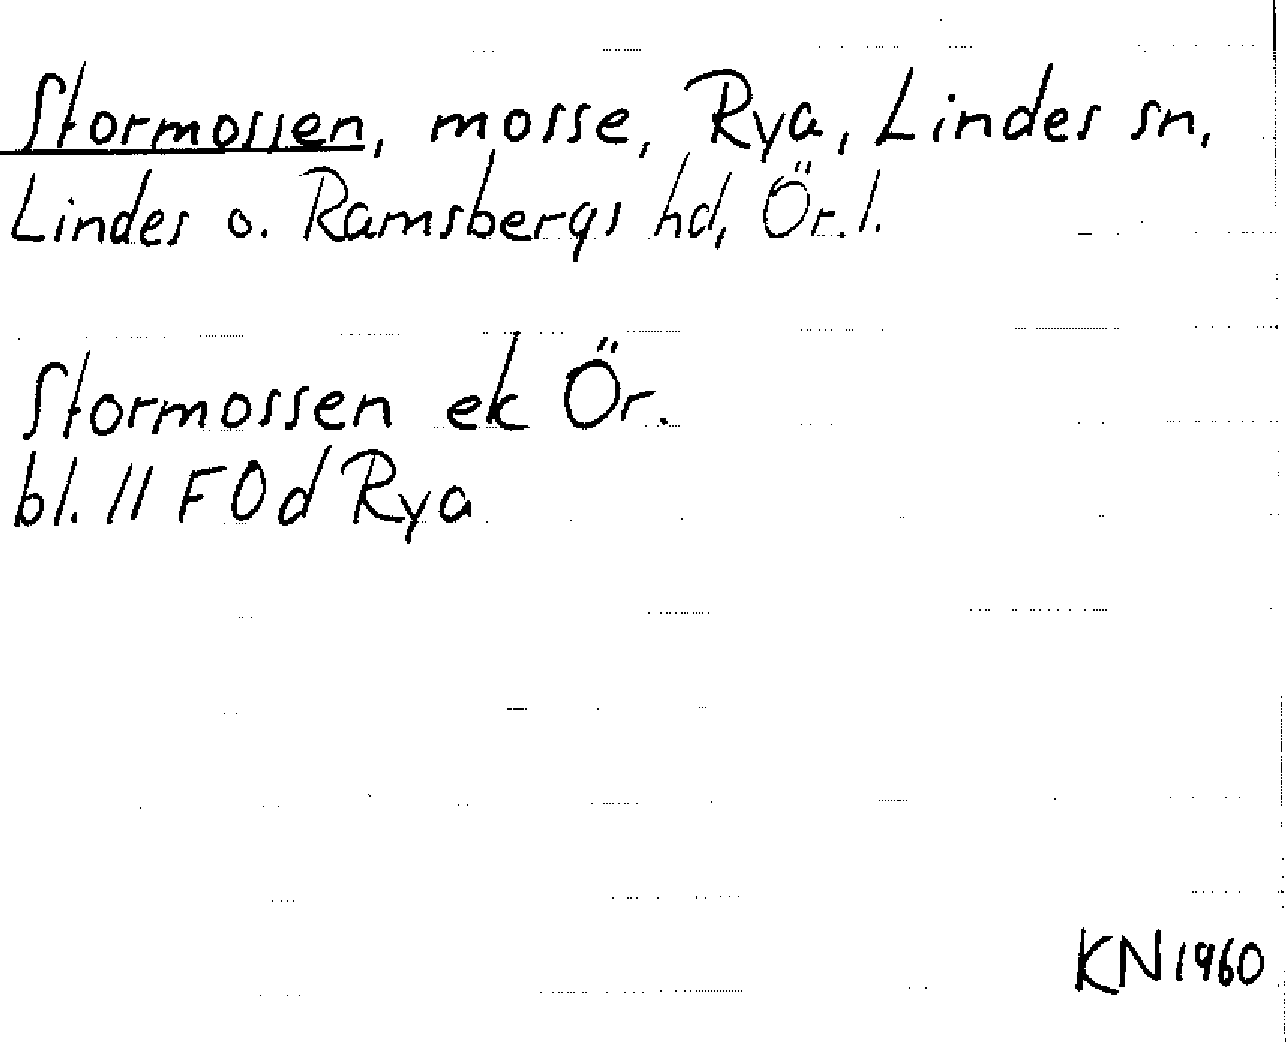 Stormossen, mosse, Rya, Lindes sn,
Lindes o. Ramsbergs hd, Ör.l.
Stormossen ek Ör.
bl. 11 F 0d Rya
KN 1960